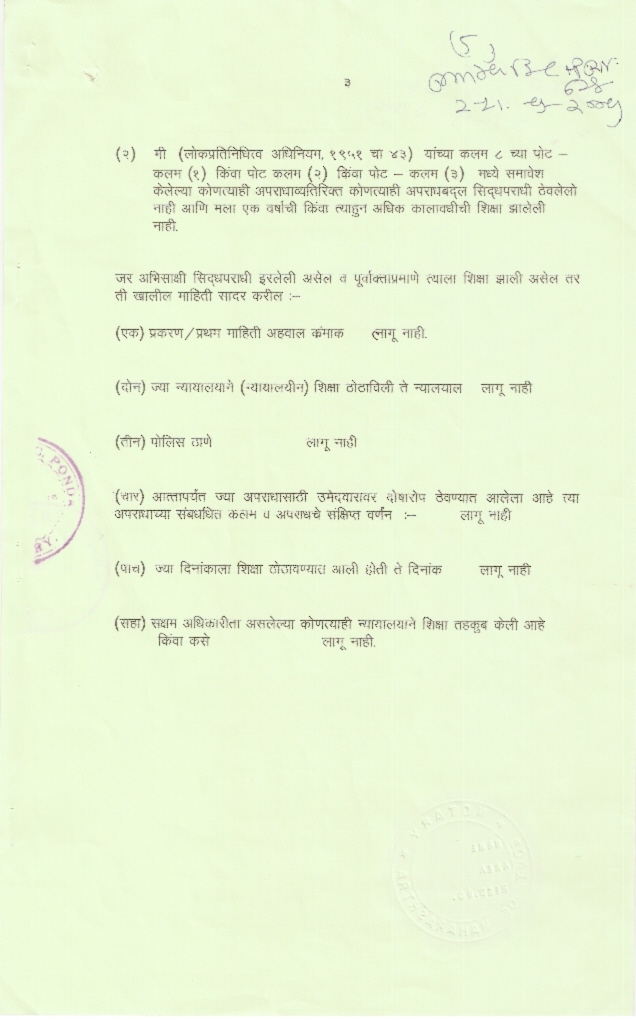 (5)
628
३
(२) मी (लोकप्रतिनिधित्व अधिनियम, १९५१ चा ४३) यांच्या कलम ८ च्या पोट –
कलम (१) किंवा पोट कलम (२) किंवा पोट – कलम (३) मध्ये समावेश
केलेल्या कोणत्याही अपराधाव्यतिरिक्त कोणत्याही अपराधबद्ल सिद्धपराधी ठेवलेलो
नाही आणि मला एक वर्षाची किंवा त्याहुन अधिक कालावधीची शिक्षा झालेली
नाही.
जर अभिसाक्षी सिद्धपराधी इरलेली असेल व पूर्वाक्ताप्रमाणे त्याला शिक्षा झाली असेल तर
ती खालील माहिती सादर करील :–
(एक) प्रकरण/प्रथम माहिती अहवाल कंमाक लागू नाही.
(दोन) ज्या न्यायालयाने (न्यायालयीन) शिक्षा ठोठाविली ते न्यालयाल लागू नाही
(तीन) पोलिस ठाणे लागू नाही
(चार) आत्तापर्यंत ज्या अपराधासाठी उमेदवारावर दोषारोप ठेवण्यात आलेला आहे त्या
अपराधाच्या संबधधित कलम व अपराधचे संक्षिप्त वर्णन :– लागू नाही
(पाच) ज्या दिनांकाला शिक्षा ठोठावण्यात आली होती ते दिनांक लागू नाही
(सहा) सक्षम अधिकारीता असलेल्या कोणत्याही न्यायालयाने शिक्षा तहकुब केली आहे
किंवा कसे लागू नाही.
NOTARY